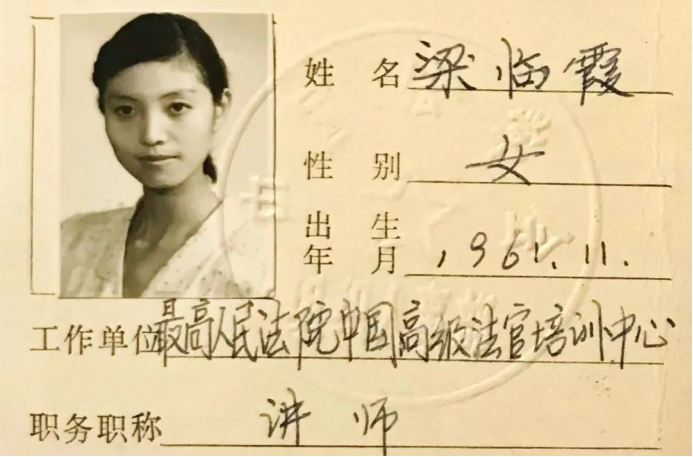 姓 名 梁临霞
性 别 女
出 生
年 月 1961.11.
工作单位 最高人民法院中国高级法官培训中心
职务职称 讲师